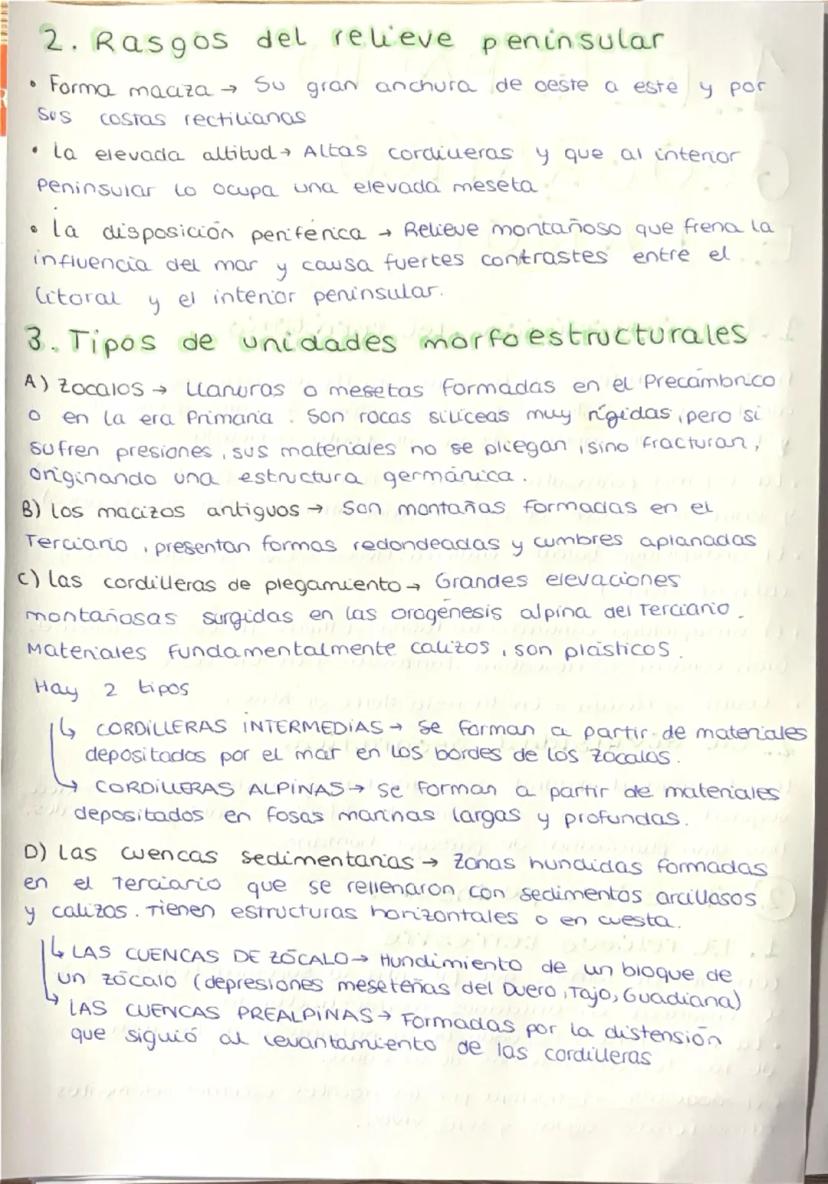 2. Rasgos del relieve peninsular
• Forma maciza → Su gran anchura de oeste a este y por
sus costas rectilianas
• La elevada altitud → Altas cordilleras y que al interior
Peninsular lo ocupa una elevada meseta
• La disposición periférica → Relieve montañoso que frena la
influencia del mar y causa fuertes contrastes entre el
litoral y el interior peninsular.
3. Tipos de unidades morfoestructurales
A) Zocalos → Llanuras o mesetas formadas en el Precámbrico
o en la era Primaria. Son rocas silíceas muy rígidas, pero si
sufren presiones, sus materiales no se pliegan, sino fracturan,
originando una estructura germánica.
B) Los macizos antiguos → Son montañas formadas en el
Terciario, presentan formas redondeadas y cumbres aplanadas
C) Las cordilleras de plegamiento → Grandes elevaciones
montañosas surgidas en las orogénesis alpina del Terciario.
Materiales fundamentalmente calizos, son plásticos.
Hay 2 tipos
↳ CORDILLERAS INTERMEDIAS → Se forman a partir de materiales
depositados por el mar en los bordes de los zócalos.
↳ CORDILLERAS ALPINAS → Se forman a partir de materiales
depositados en fosas marinas largas y profundas.
D) Las cuencas sedimentarias → Zonas hundidas formadas
en el Terciario que se rellenaron con sedimentos arcillosos
y calizos. Tienen estructuras horizontales o en cuesta.
↳ LAS CUENCAS DE ZÓCALO → Hundimiento de un bloque de
un zócalo (depresiones meseteñas del Duero, Tajo, Guadiana)
↳ LAS CUENCAS PREALPINAS → Formadas por la distensión
que siguió al levantamiento de las cordilleras